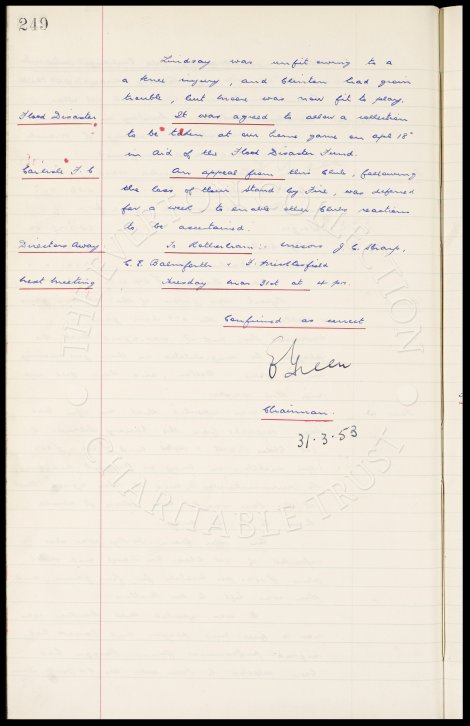 249
Lindsay was unfit owing to a
a knee injury, and Clinton had groin
trouble, but Moore was now fit to play.
Flood Disaster It was agreed to allow a collection
to be taken at our home game on Apl 18th
in aid of the Flood Disaster Fund.
Carlisle F. C An appeal from this Club, following
the loss of their Stand by Fire, was deferred
for a week to enable other Clubs reactions
to be ascertained.
Directors Away To Rotherham :- Messrs J. C. Sharp,
C. E. Balmforth & F. Micklesfield
Next Meeting Tuesday Mar 31st at 4 pm
Confirmed as correct
E Green
Chairman.
31.3.53
THE EVERTON COLLECTION
CHARITABLE TRUST